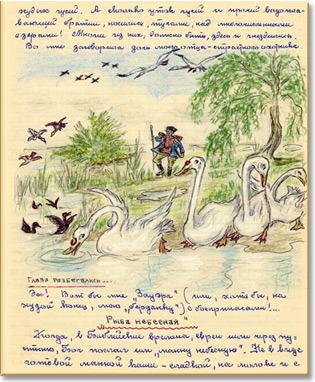 жудых гусей. А сколько уток гусей и прочей водопла-
вающей братии, носились тучами, над многочисленными
озерами! Многие из них, должно быть, здесь и гнездились.
Во мне заговорила дочь мой страстного охотника.
Глаза разбегались...
Эх! Вот бы мне "Зауэра" (или, хотя бы, на
худой конец, мою "берданку") с боеприпасами!...
"Рыба небесная"
Когда, в Библейские времена, евреи шли через пус-
тыню, Бог послал им "манну небесную". Не в виде
готовой манной каши - сладкой, на молоке и с